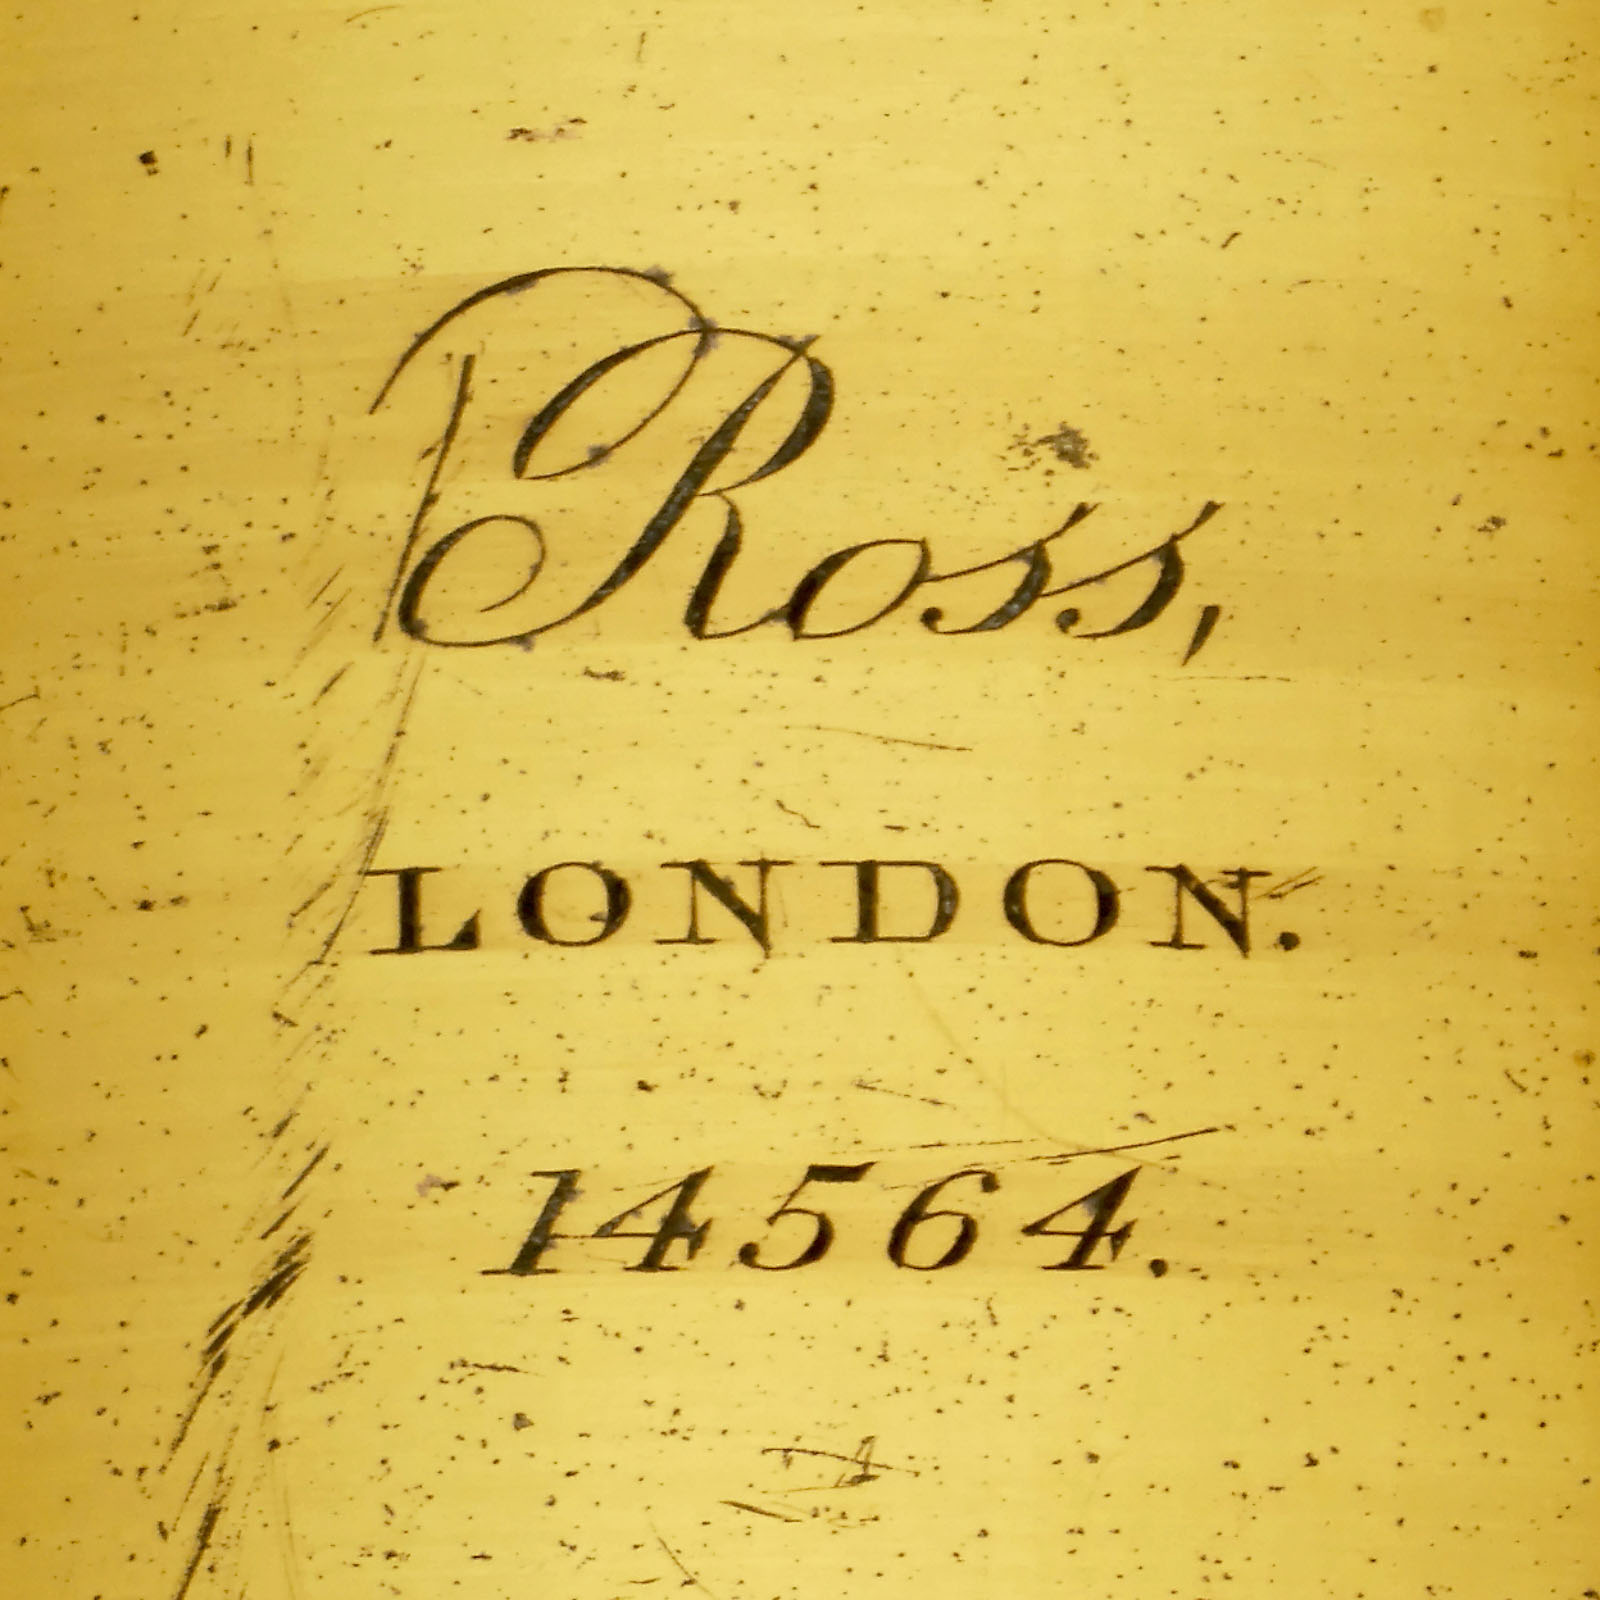 Ross,
LONDON.
14564.